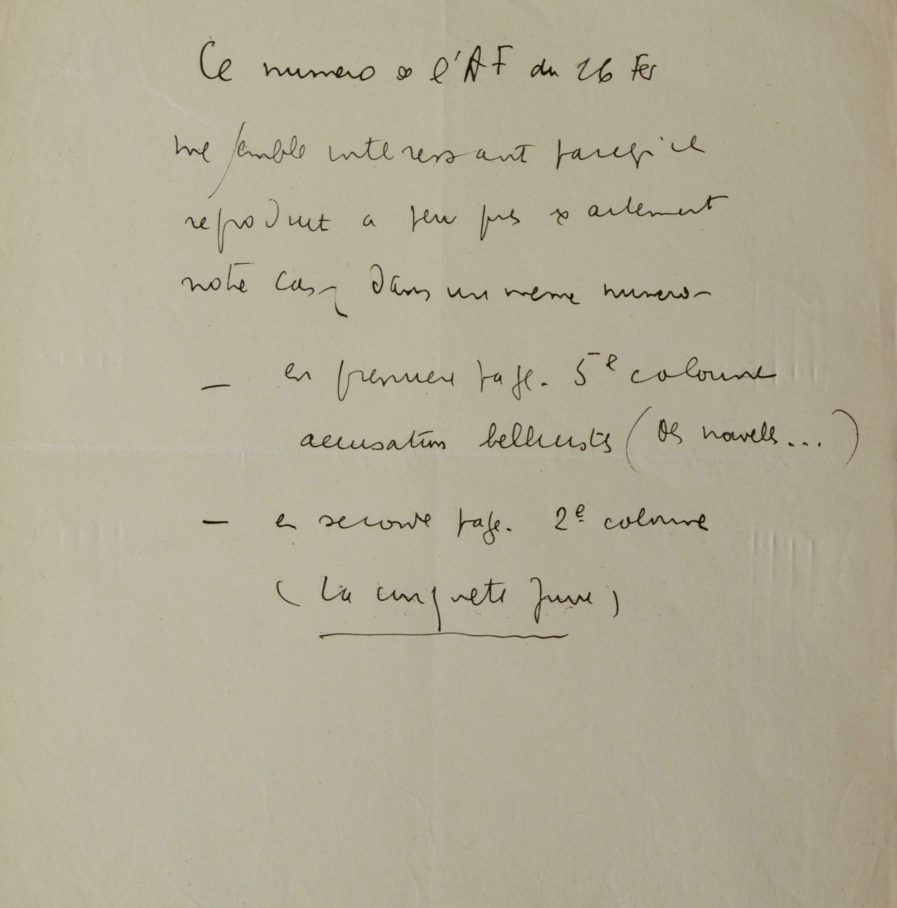 Ce numero de l'AF du 26 Fev
me semble interessant parcequ'il
reproduit a peu pres exactement
notre cas, dans un meme numero
— en premiere page. 5e colonne
accusation bellicistes (des nouvelles...)
— en seconde page. 2e colonne
(La conquete juive)